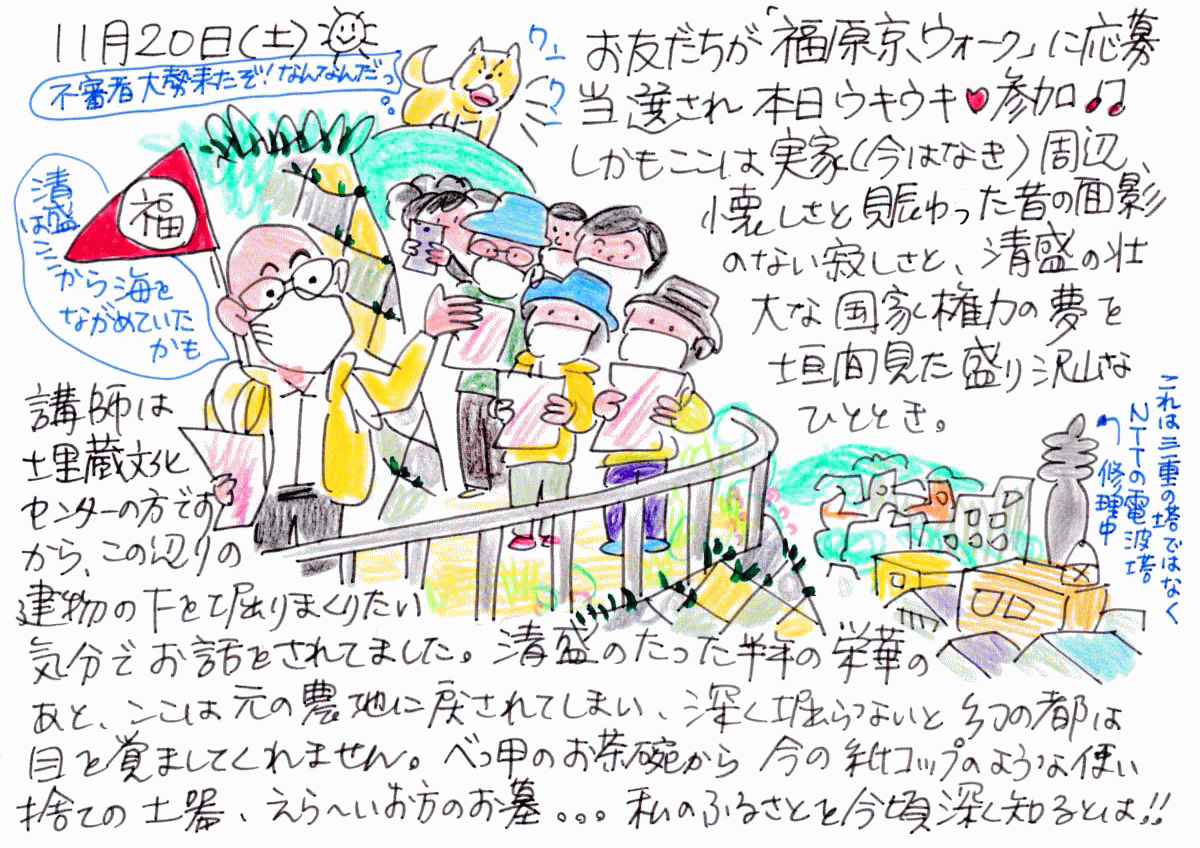 11月20日(土)
不審者大勢来たぞ!なんなんだっ
ワン
ワン
お友だちが「福原京ウォーク」に応募
当選され本日ウキウキ♥参加♪♫
しかもここは実家(今はなき)周辺、
懐しさと賑わった昔の面影
のない寂しさと、清盛の壮
大な国家権力の夢を
垣間見た盛り沢山な
ひととき。
清盛
はここ
から海を
ながめていた
かも
福
これは三重の塔ではなく
NTTの電波塔
修理中
講師は
埋蔵文化
センターの方です
から、この辺りの
建物の下を堀りまくりたい
気分でお話をされてました。清盛のたった半年の栄華の
あと、ここは元の農地に戻されてしまい、深く堀らないと幻の都は
目を覚ましてくれません。べっ甲のお茶碗から今の紙コップのような使い
捨ての土器、えら〜いお方のお墓。。。私のふるさとを今頃深く知るとは!!